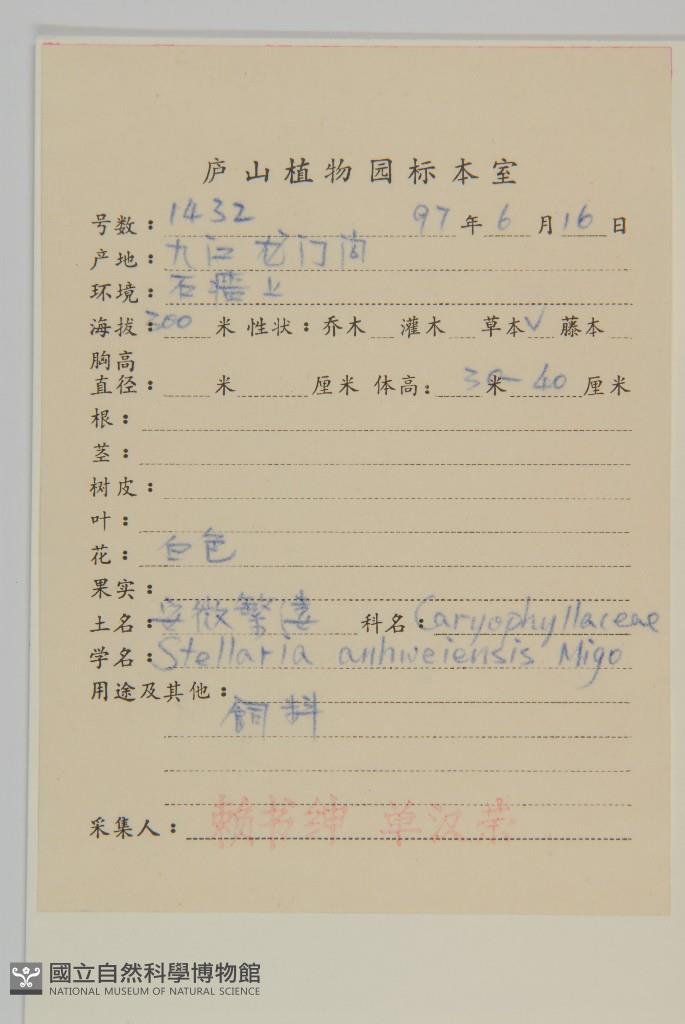 庐山植物园标本室
号数：1432 97年6月16日
产地：九江龙门
环境：石墙上
海拔：300米 性状：乔木 灌木 草本√ 藤本
胸高
直径： 米 厘米 体高： 米30-40厘米
根：
茎：
树皮：
叶：
花：白色
果实：
土名：安徽繁蒌 科名：Caryophyllaceae
学名：Stellaria anhweiensis Migo
用途及其他：
飼料
采集人：赖书绅 单汉荣
國立自然科學博物館
NATIONAL MUSEUM OF NATURAL SCIENCE